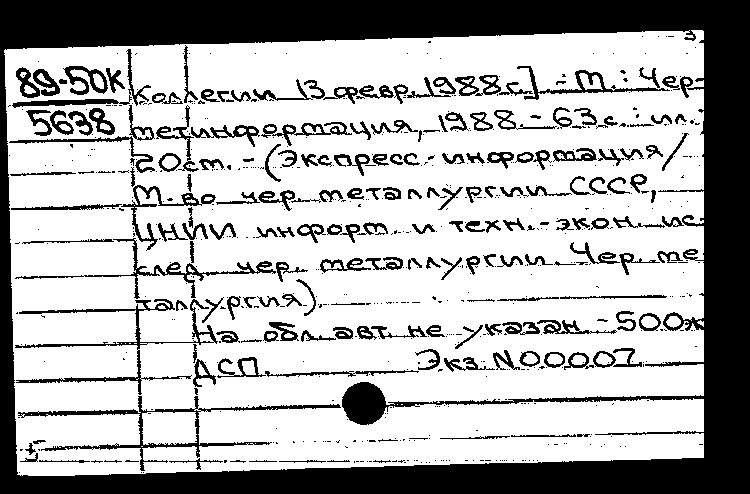 3
89-50К
5638
Коллегии 13 февр. 1988 г.] - М. : Чер-
метинформация, 1988. - 63 с. : ил. ;
20 см. - (Экспресс-информация /
М-во чер. металлургии СССР,
ЦНИИ информ. и техн.-экон. ис-
след. чер. металлургии. Чер. ме-
таллургия).
На обл. авт. не указан. - 500
ДСП. Экз. N00007
5